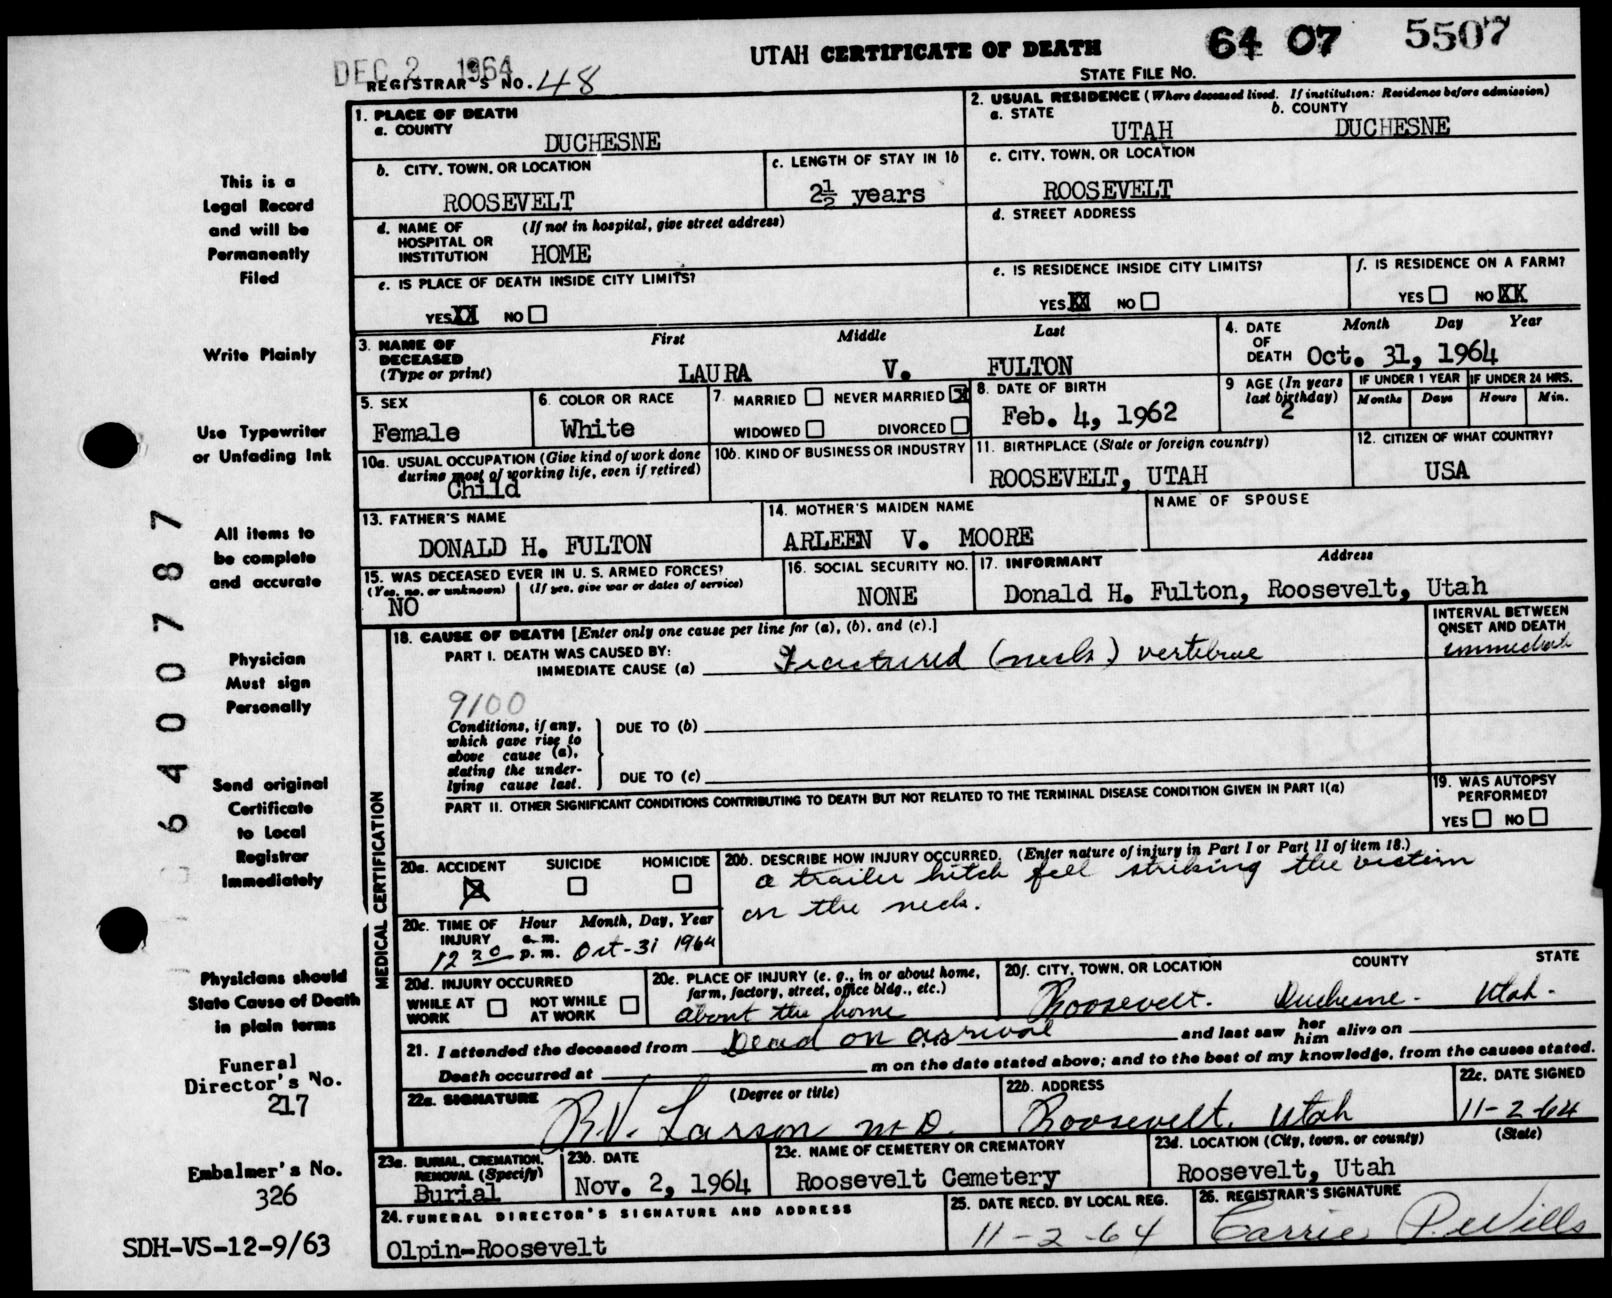 DEC 2 1964
UTAH CERTIFICATE OF DEATH
64 07 5507
REGISTRAR'S NO. 48
STATE FILE NO.
This is a
Legal Record
and will be
Permanently
Filed
Write Plainly
Use Typewriter
or Unfading Ink
All items to
be complete
and accurate
Physician
Must sign
Personally
Send original
Certificate
to Local
Registrar
Immediately
Physicians should
State Cause of Death
in plain terms
Funeral
Director's No.
217
Embalmer's No.
326
SDH-VS-12-9/63
6400787
1. PLACE OF DEATH
a. COUNTY
DUCHESNE
2. USUAL RESIDENCE (Where deceased lived. If institution: Residence before admission)
a. STATE
UTAH
b. COUNTY
DUCHESNE
b. CITY, TOWN, OR LOCATION
ROOSEVELT
c. LENGTH OF STAY IN 1b
2½ years
c. CITY, TOWN, OR LOCATION
ROOSEVELT
d. NAME OF HOSPITAL OR INSTITUTION (If not in hospital, give street address)
HOME
d. STREET ADDRESS
e. IS PLACE OF DEATH INSIDE CITY LIMITS?
YES XX NO
e. IS RESIDENCE INSIDE CITY LIMITS?
YES XX NO
f. IS RESIDENCE ON A FARM?
YES NO XX
3. NAME OF DECEASED (Type or print)
First Middle Last
LAURA V. FULTON
4. DATE OF DEATH
Month Day Year
Oct. 31, 1964
5. SEX
Female
6. COLOR OR RACE
White
7. MARRIED NEVER MARRIED X
WIDOWED DIVORCED
8. DATE OF BIRTH
Feb. 4, 1962
9 AGE (In years last birthday)
2
IF UNDER 1 YEAR
Months Days
IF UNDER 24 HRS.
Hours Min.
10a. USUAL OCCUPATION (Give kind of work done during most of working life, even if retired)
Child
10b. KIND OF BUSINESS OR INDUSTRY
11. BIRTHPLACE (State or foreign country)
ROOSEVELT, UTAH
12. CITIZEN OF WHAT COUNTRY?
USA
13. FATHER'S NAME
DONALD H. FULTON
14. MOTHER'S MAIDEN NAME
ARLEEN V. MOORE
NAME OF SPOUSE
15. WAS DECEASED EVER IN U. S. ARMED FORCES?
(Yes, no, or unknown) (If yes, give war or dates of service)
NO
16. SOCIAL SECURITY NO.
NONE
17. INFORMANT Address
Donald H. Fulton, Roosevelt, Utah
MEDICAL CERTIFICATION
18. CAUSE OF DEATH [Enter only one cause per line for (a), (b), and (c).]
INTERVAL BETWEEN ONSET AND DEATH
PART I. DEATH WAS CAUSED BY:
IMMEDIATE CAUSE (a) Fractured (neck) vertebrae
immediate
9100
Conditions, if any, which gave rise to above cause (a), stating the underlying cause last.
DUE TO (b)
DUE TO (c)
PART II. OTHER SIGNIFICANT CONDITIONS CONTRIBUTING TO DEATH BUT NOT RELATED TO THE TERMINAL DISEASE CONDITION GIVEN IN PART I(a)
19. WAS AUTOPSY PERFORMED?
YES NO
20a. ACCIDENT SUICIDE HOMICIDE
X
20b. DESCRIBE HOW INJURY OCCURRED. (Enter nature of injury in Part I or Part II of item 18.)
a trailer hitch fell striking the victim
on the neck.
20c. TIME OF INJURY
Hour Month, Day, Year
a.m.
12 30 p.m. Oct-31 1964
20d. INJURY OCCURRED
WHILE AT WORK NOT WHILE AT WORK
20e. PLACE OF INJURY (e. g., in or about home, farm, factory, street, office bldg., etc.)
about the home
20f. CITY, TOWN, OR LOCATION COUNTY STATE
Roosevelt. Duchesne. Utah.
21. I attended the deceased from Dead on arrival and last saw her him alive on
Death occurred at m on the date stated above; and to the best of my knowledge, from the causes stated.
22a. SIGNATURE (Degree or title)
R.V. Larson M.D.
22b. ADDRESS
Roosevelt, Utah
22c. DATE SIGNED
11-2-64
23a. BURIAL, CREMATION, REMOVAL (Specify)
Burial
23b. DATE
Nov. 2, 1964
23c. NAME OF CEMETERY OR CREMATORY
Roosevelt Cemetery
23d. LOCATION (City, town, or county) (State)
Roosevelt, Utah
24. FUNERAL DIRECTOR'S SIGNATURE AND ADDRESS
Olpin-Roosevelt
25. DATE RECD. BY LOCAL REG.
11-2-64
26. REGISTRAR'S SIGNATURE
Carrie P. Wills